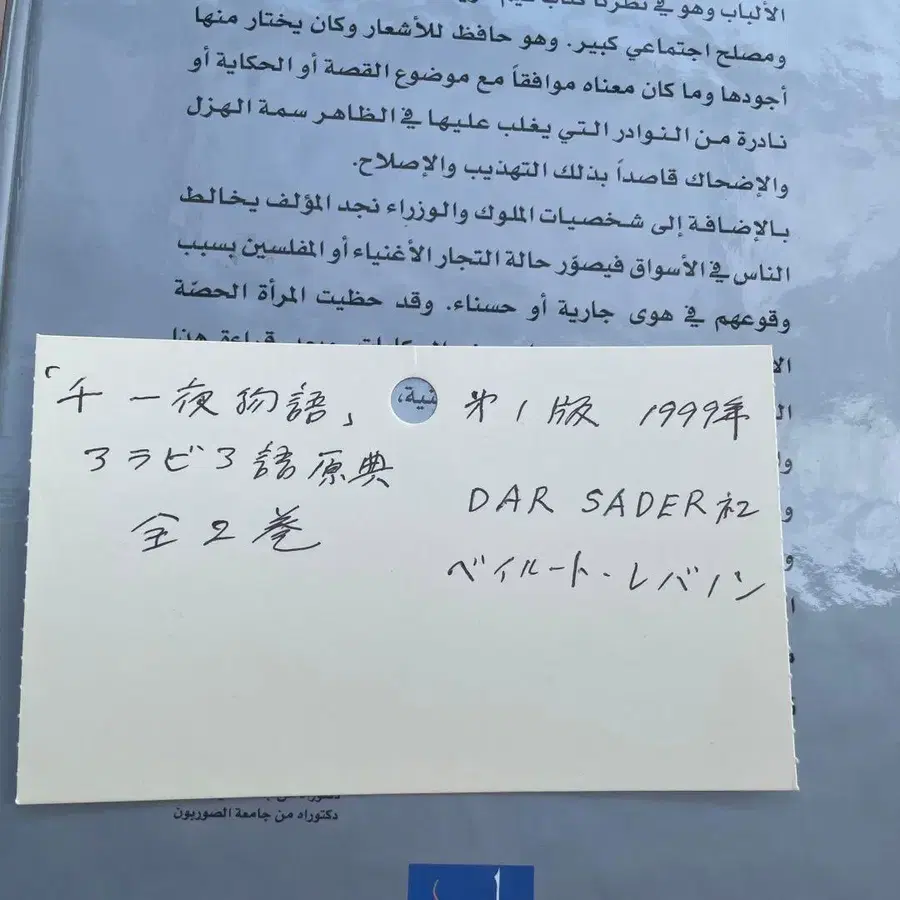 ومصلح اجتماعي كبير. وهو حافظ للأشعار وكان يختار منها
أجودها وما كان معناه موافقاً مع موضوع القصة أو الحكاية أو
نادرة من النوادر التي يغلب عليها في الظاهر سمة الهزل
والإضحاك قاصداً بذلك التهذيب والإصلاح.
بالإضافة إلى شخصيات الملوك والوزراء نجد المؤلف يخالط
الناس في الأسواق فيصوّر حالة التجار الأغنياء أو المفلسين بسبب
وقوعهم في هوى جارية أو حسناء. وقد حظيت المرأة الحصّة
「千一夜物語」
アラビア語原典
全2巻
第1版 1999年
DAR SADER社
ベイルート・レバノン
دكتوراه من جامعة الصوربون